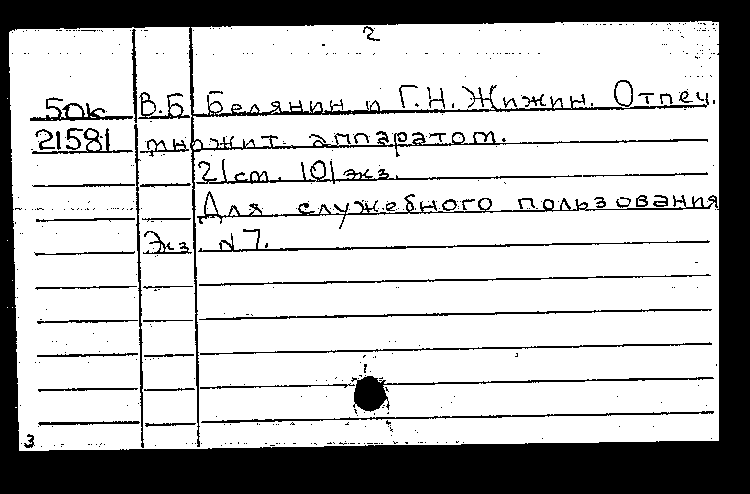 2
50к В.Б Белянин и Г.Н. Жижин. Отпеч.
21581 множит. аппаратом.
21 ст. 101 экз.
Для служебного пользования
Экз. N 7.
3